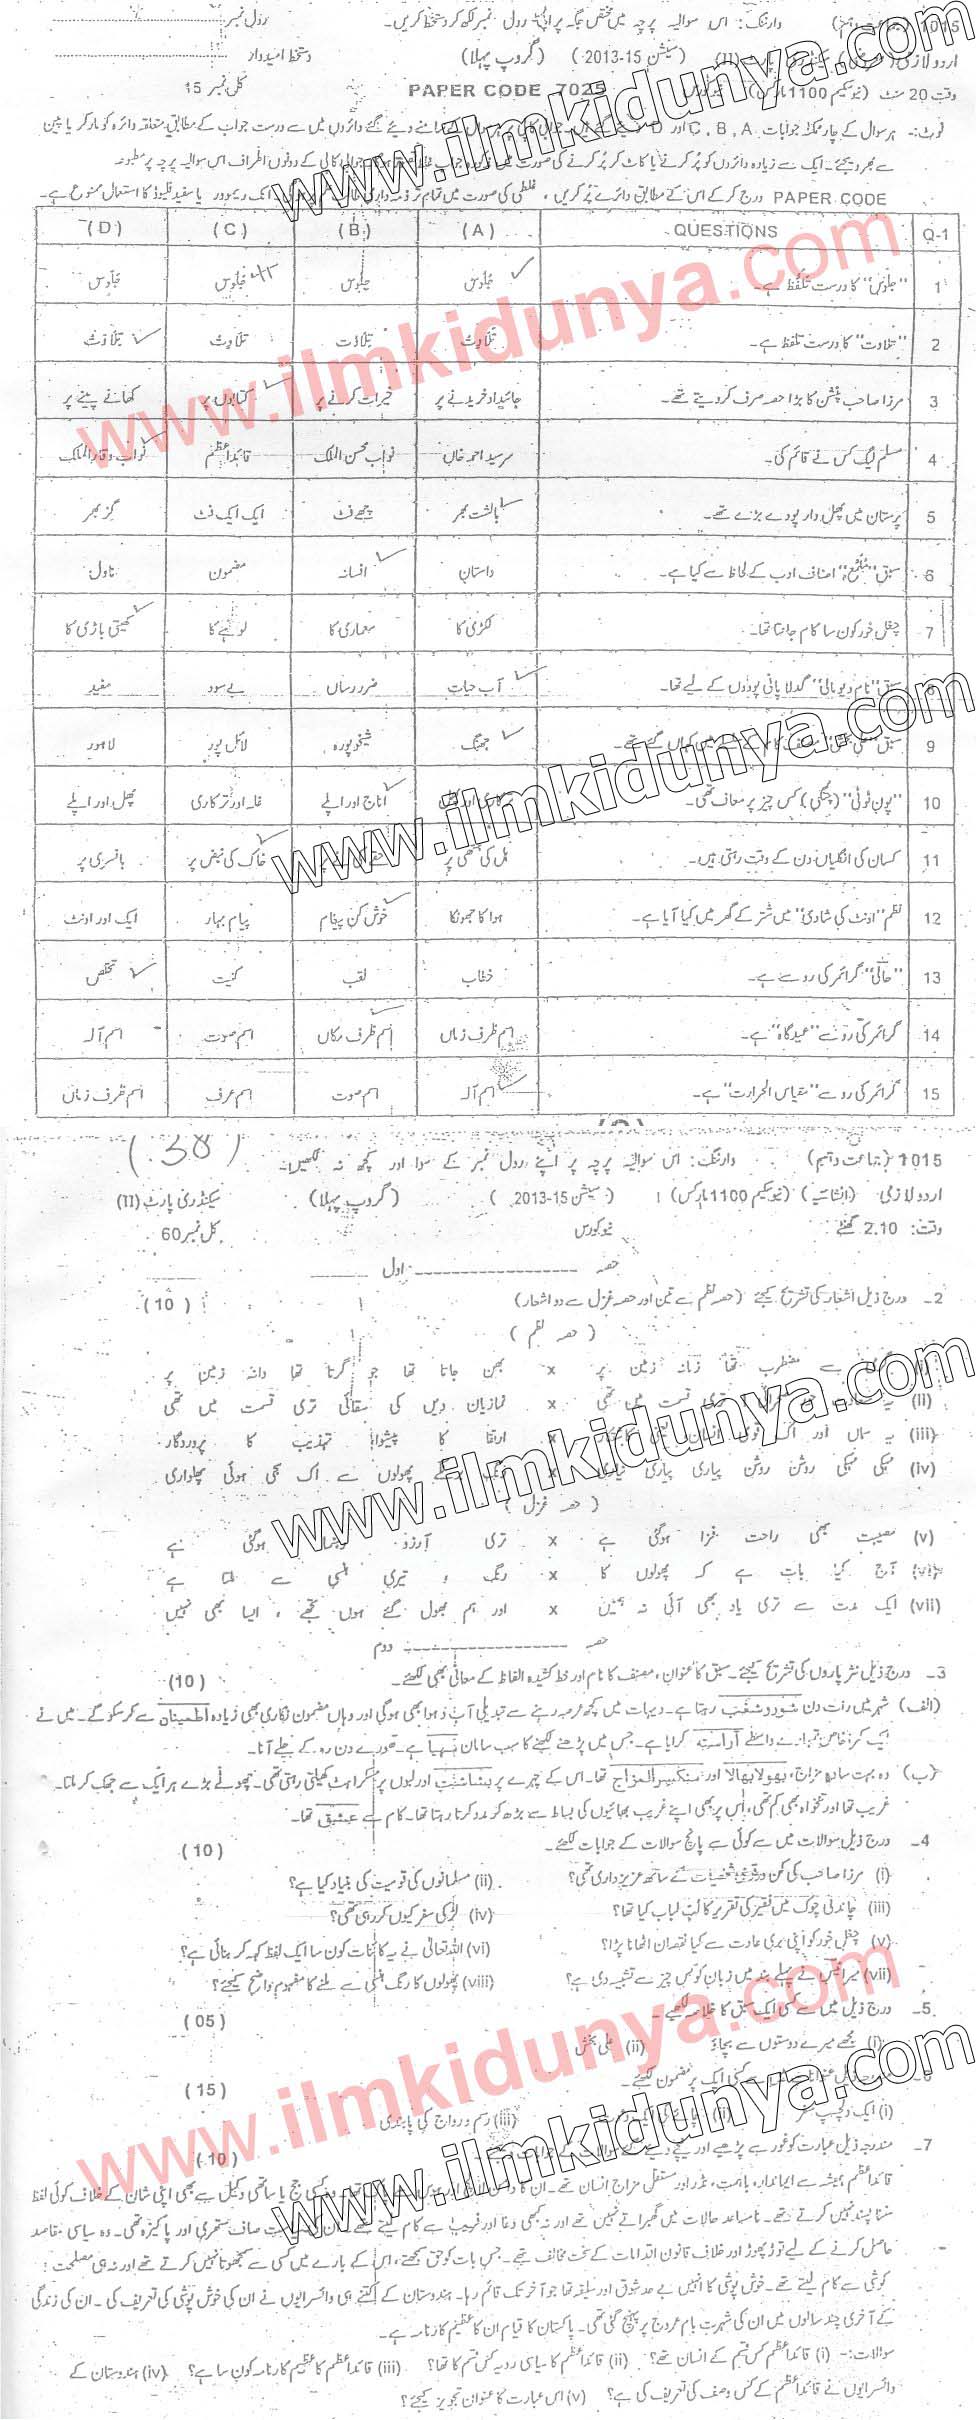 1015 (جماعت دہم) وارننگ: اس سوالیہ پرچہ میں مختص جگہ پر اپنا رول نمبر لکھ کر دستخط کریں۔ رول نمبر
اردو لازمی (II) (سیشن 15-2013) (گروپ پہلا) دستخط امیدوار
وقت 20 منٹ (نیو سکیم 1100 مارکس) PAPER CODE 7025 کل نمبر 15
نوٹ:- ہر سوال کے چار ممکنہ جوابات C, B, A اور D دیئے گئے ہیں۔ سامنے دیئے گئے دائروں میں سے درست جواب کے مطابق متعلقہ دائرہ کو مارکر یا پین
سے بھر دیجئے۔ ایک سے زیادہ دائروں کو پُر کرنے یا کاٹ کر پُر کرنے کی صورت میں کے دونوں اطراف اس سوالیہ پرچہ پر مطبوعہ
PAPER CODE درج کر کے اس کے مطابق دائرے پُر کریں، غلطی کی صورت میں تمام تر ذمہ داری انک ریموور یا سفید فلیوڈ کا استعمال ممنوع ہے۔
Q-1 QUESTIONS (A) (B) (C) (D)
1 "جلوس" کا درست تلفظ ہے۔ جلوس جلوس جلوس جلوس
2 "تلاوت" کا درست تلفظ ہے۔ تلاوت تلاوت تلاوت تلاوت
3 مرزا صاحب پنشن کا بڑا حصہ صرف کر دیتے تھے۔ جائیداد خریدنے پر خیرات کرنے پر کتابوں پر کھانے پینے پر
4 مسلم لیگ کس نے قائم کی۔ سرسید احمد خاں نواب محسن الملک قائداعظم نواب وقار الملک
5 پرستان میں پھل دار پودے بڑے تھے۔ بالشت بھر چھے فٹ ایک ایک فٹ گز بھر
6 سبق "ملمع" اصناف ادب کے لحاظ سے کیا ہے۔ داستان افسانہ مضمون ناول
7 چغل خور کون سا کام جانتا تھا۔ لکڑی کا معماری کا لوہے کا کھیتی باڑی کا
8 سبق "نام دیو مالی" گدلا پانی پودوں کے لیے تھا۔ آب حیات ضرر رساں بے سود مفید
9 سبق "علی بخش" مصنف کہاں گئے تھے۔ جھنگ شیخوپورہ لائل پور لاہور
10 "پون ٹوٹی" (چنگی) کس چیز پر معاف تھی۔ اناج اور اپلے غلہ اور ترکاری پھل اور اپلے
11 کسان کی انگلیاں دن کے وقت رہتی ہیں۔ ہل کی ہتھی پر خاک کی نبض پر بانسری پر
12 نظم "اونٹ کی شادی" میں شتر کے گھر میں کیا آیا ہے۔ ہوا کا جھونکا خوش کن پیغام پیام بہار ایک اور اونٹ
13 "حالی" گرائمر کی رو سے ہے۔ خطاب لقب کنیت تخلص
14 گرائمر کی رو سے "عیدگاہ" ہے۔ اسم ظرف زماں اسم ظرف مکاں اسم صوت اسم آلہ
15 گرائمر کی رو سے "مقیاس الحرارت" ہے۔ اسم آلہ اسم صوت اسم عرف اسم ظرف زماں
(38)
1015 (جماعت دہم) وارننگ: اس سوالیہ پرچہ پر اپنے رول نمبر کے سوا اور کچھ نہ لکھیں۔
اردو لازمی (انشائیہ) (نیو سکیم 1100 مارکس) (سیشن 15-2013) (گروپ پہلا) سیکنڈری پارٹ (II)
وقت: 2.10 گھنٹے نیو کورس کل نمبر 60
حصہ اول
2- درج ذیل اشعار کی تشریح کیجئے (حصہ نظم سے تین اور حصہ غزل سے دو اشعار) (10)
(حصہ نظم)
سے مضطرب تھا زمانہ زمین پر x بھن جاتا تھا جو گرتا تھا دانہ زمین پر
(ii) یہ تری قسمت میں تھی x غازیانِ دیں کی سقائی تری قسمت میں تھی
(iii) یہ سماں اور اک قوی انسان یعنی کاشتکار x ارتقا کا پیشوا، تہذیب کا پروردگار
(iv) مہکی مہکی روشن روشن پیاری پیاری نیاری x پھولوں سے اک سجی ہوئی پھلواری
(حصہ غزل)
(v) مصیبت بھی راحت فزا ہو گئی ہے x تری آرزو رہنما ہو گئی ہے
(vi) آج کیا بات ہے کہ پھولوں کا x رنگ تیری ہنسی سے ملتا ہے
(vii) ایک مدت سے تری یاد بھی آئی نہ ہمیں x اور ہم بھول گئے ہوں تجھے، ایسا بھی نہیں
حصہ دوم
3- درج ذیل نثر پاروں کی تشریح کیجئے۔ سبق کا عنوان، مصنف کا نام اور خط کشیدہ الفاظ کے معانی بھی لکھئے۔ (10)
(الف) شہر میں رات دن شور و شغب رہتا ہے۔ دیہات میں کچھ عرصہ رہنے سے تبدیلی آب و ہوا بھی ہوگی اور وہاں مضمون نگاری بھی زیادہ اطمینان سے کر سکو گے۔ میں نے
ایک کمرہ خاص تمہارے واسطے آراستہ کرایا ہے۔ جس میں پڑھنے لکھنے کا سب سامان مہیا ہے۔ تھوڑے دن رہ کے چلے آنا۔
(ب) وہ بہت سادہ مزاج، بھولا بھالا اور منکسر المزاج تھا۔ اس کے چہرے پر بشاشت اور لبوں پر مسکراہٹ کھیلتی رہتی تھی۔ چھوٹے بڑے ہر ایک سے جھک کر ملتا۔
غریب تھا اور تنخواہ بھی کم تھی، اس پر بھی اپنے غریب بھائیوں کی بساط سے بڑھ کر مدد کرتا رہتا تھا۔ کام سے عشق تھا۔
4- درج ذیل سوالات میں سے کوئی سے پانچ سوالات کے جوابات لکھئے۔ (10)
(i) مرزا صاحب کی کن دو شخصیات کے ساتھ عزیز داری تھی؟ (ii) مسلمانوں کی قومیت کی بنیاد کیا ہے؟
(iii) چاندنی چوک میں فقیر کی تقریر کا لب لباب کیا تھا؟ (iv) لڑکی سفر کیوں کر رہی تھی؟
(v) چغل خور کو اپنی بری عادت سے کیا نقصان اٹھانا پڑا؟ (vi) اللہ تعالیٰ نے یہ کائنات کون سا ایک لفظ کہہ کر بنائی ہے؟
(vii) میر انیس نے پہلے بند میں زبان کو کس چیز سے تشبیہ دی ہے؟ (viii) پھولوں کا رنگ ہنسی سے ملنے کا مفہوم واضح کیجئے؟
5- درج ذیل میں سے کسی ایک سبق کا خلاصہ لکھئے۔ (05)
(i) مجھے میرے دوستوں سے بچاؤ (ii) علی بخش
6- درج ذیل عنوانات میں سے کسی ایک پر مضمون لکھئے۔ (15)
(i) ایک دلچسپ سفر (ii) (iii) رسم و رواج کی پابندی
7- مندرجہ ذیل عبارت کو غور سے پڑھیے اور نیچے دیئے گئے سوالات کے جوابات (10)
قائداعظم ہمیشہ سے ایماندار، باہمت، نڈر اور مستقل مزاج انسان تھے۔ ان کا وہ کسی جج یا ساتھی وکیل سے بھی اپنی شان کے خلاف کوئی لفظ
سننا پسند نہیں کرتے تھے۔ نامساعد حالات میں گھبراتے نہیں تھے اور نہ کبھی دغا اور فریب سے کام لیتے تھے۔ ان کی صاف ستھری اور پاکیزہ تھی۔ وہ سیاسی مقاصد
حاصل کرنے کے لیے توڑ پھوڑ اور خلاف قانون اقدامات کے سخت مخالف تھے۔ جس بات کو حق سمجھتے، اس کے بارے میں کسی سے سمجھوتا نہیں کرتے تھے اور نہ ہی مصلحت
کوشی سے کام لیتے تھے۔ خوش پوشی کا انہیں بے حد شوق اور سلیقہ تھا جو آخر تک قائم رہا۔ ہندوستان کے کتنے ہی وائسرائیوں نے ان کی خوش پوشی کی تعریف کی۔ ان کی زندگی
کے آخری چند سالوں میں ان کی شہرت بام عروج پر پہنچ گئی تھی۔ پاکستان کا قیام ان کا عظیم کارنامہ ہے۔
سوالات:- (i) قائداعظم کس قسم کے انسان تھے؟ (ii) قائداعظم کا سیاسی رویہ کس قسم کا تھا؟ (iii) قائداعظم کا عظیم کارنامہ کون سا ہے؟ (iv) ہندوستان کے
وائسرائیوں نے قائداعظم کے کس وصف کی تعریف کی ہے؟ (v) اس عبارت کا عنوان تجویز کیجئے؟
www.ilmkidunya.com
www.ilmkidunya.com
www.ilmkidunya.com
www.ilmkidunya.com
www.ilmkidunya.com
www.ilmkidunya.com